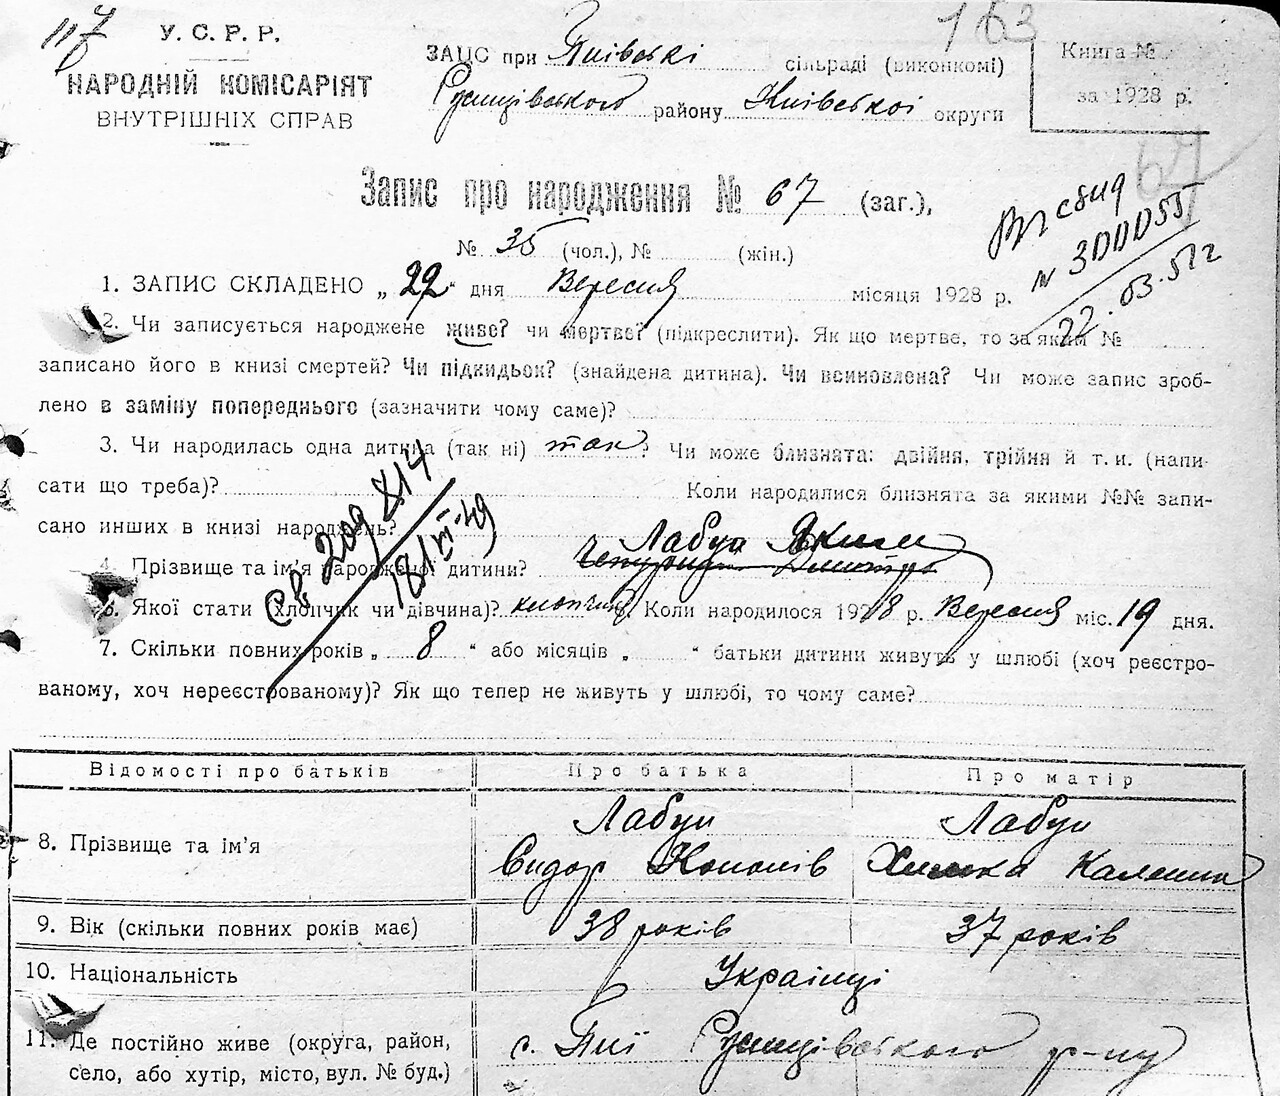 117
163
У. С. Р. Р.
НАРОДНІЙ КОМІСАРІЯТ
ВНУТРІШНІХ СПРАВ
ЗАЦС при Пиївські сільраді (виконкомі)
району Київської округи
Книга №
за 1928 р.
67
Запис про народження № 67 (заг.),
№ 35 (чол.), № (жін.)
22.03.51 г
1. ЗАПИС СКЛАДЕНО „22“ дня Вересня місяця 1928 р.
2. Чи записується народжене живе? чи мертве? (підкреслити). Як що мертве, то за яким №
записано його в книзі смертей? Чи підкидьок? (знайдена дитина). Чи всиновлена? Чи може запис зроб-
лено в заміну попереднього (зазначити чому саме)?
3. Чи народилась одна дитина (так ні) так? Чи може близнята: двійня, трійня й т. и. (напи-
сати що треба)? Коли народилися близнята за якими №№ запи-
сано инших в книзі народжень?
18/VI-49
Лабун Яким
4. Прізвище та ім'я народженої дитини?
5. Якої стати (хлопчик чи дівчина)? хлопчик 6. Коли народилося 1928 р. Вересня міс. 19 дня.
7. Скільки повних років „ 8 “ або місяців „ “ батьки дитини живуть у шлюбі (хоч реєстро-
ваному, хоч нереєстрованому)? Як що тепер не живуть у шлюбі, то чому саме?
Відомості про батьків Про батька Про матір
8. Прізвище та ім'я Лабун Лабун
Сидор Кононів Химка
9. Вік (скільки повних років має) 38 років 37 років
10. Національність Українці
11. Де постійно живе (округа, район, с. Пиї р-ну
село, або хутір, місто, вул. № буд.)